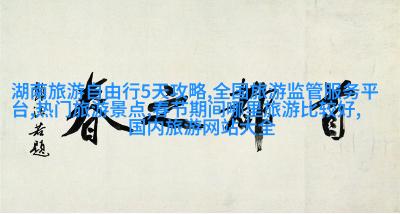 湖南旅游自由行5天攻略,全国旅游监管服务平
台,热门旅游景点,春节期间哪里旅游比较好,
国内旅游网站大全
首
春
沫若題